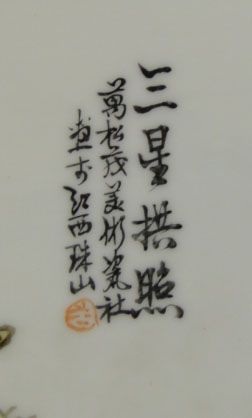 三星拱照
萬松茂美術瓷社
畫於江西珠山